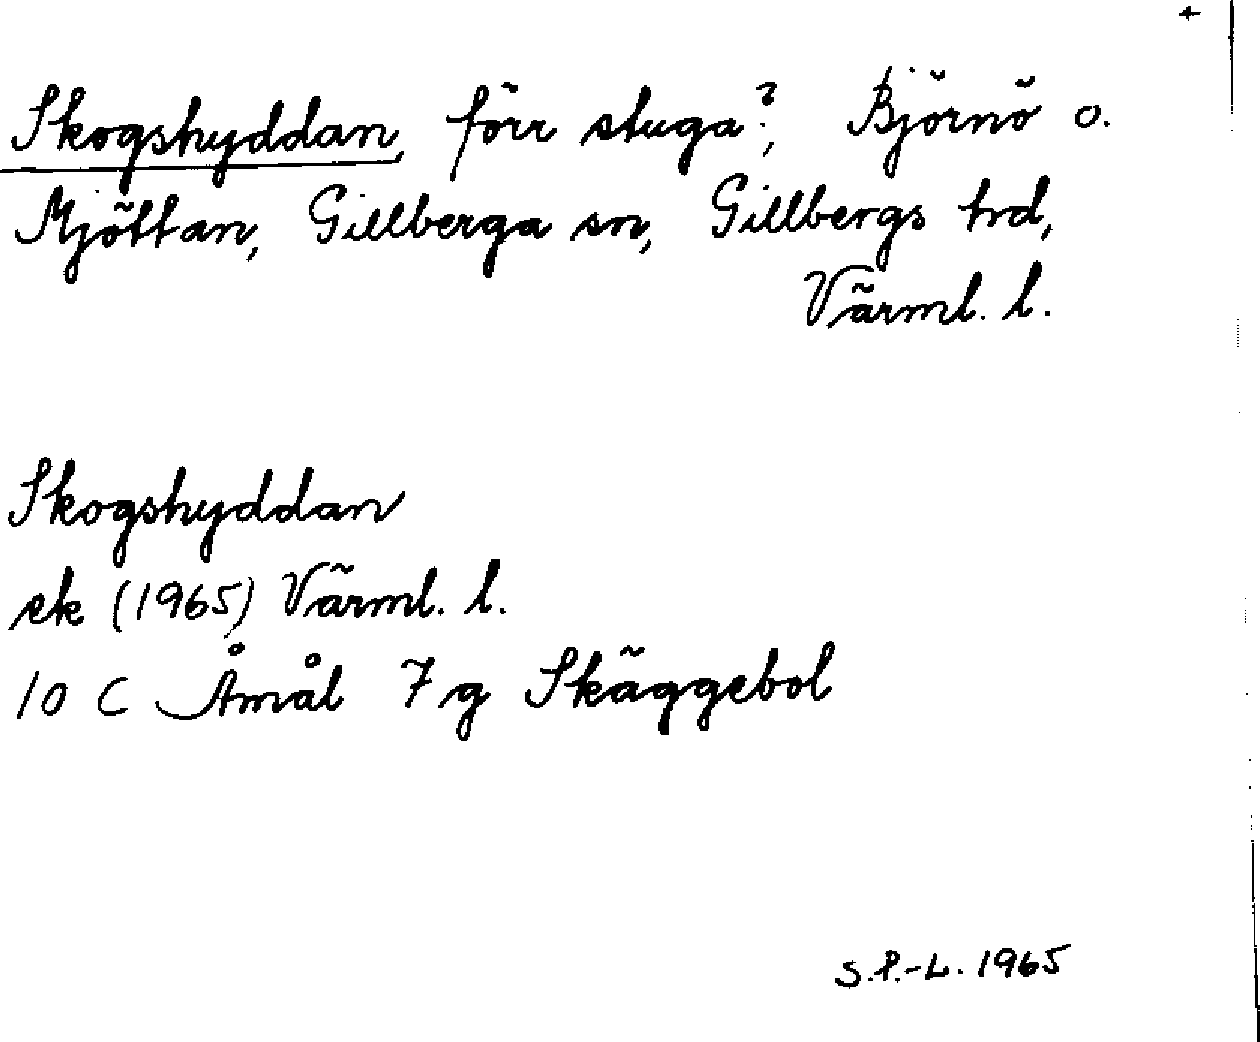 +
Skogshyddan, förr stuga?, Björnö o.
Mjöttan, Gillberga sn, Gillbergs hrd,
Värml. l.
Skogshyddan
ek (1965) Värml. l.
10 C Åmål 7 g Skäggebol
S.P.-L. 1965